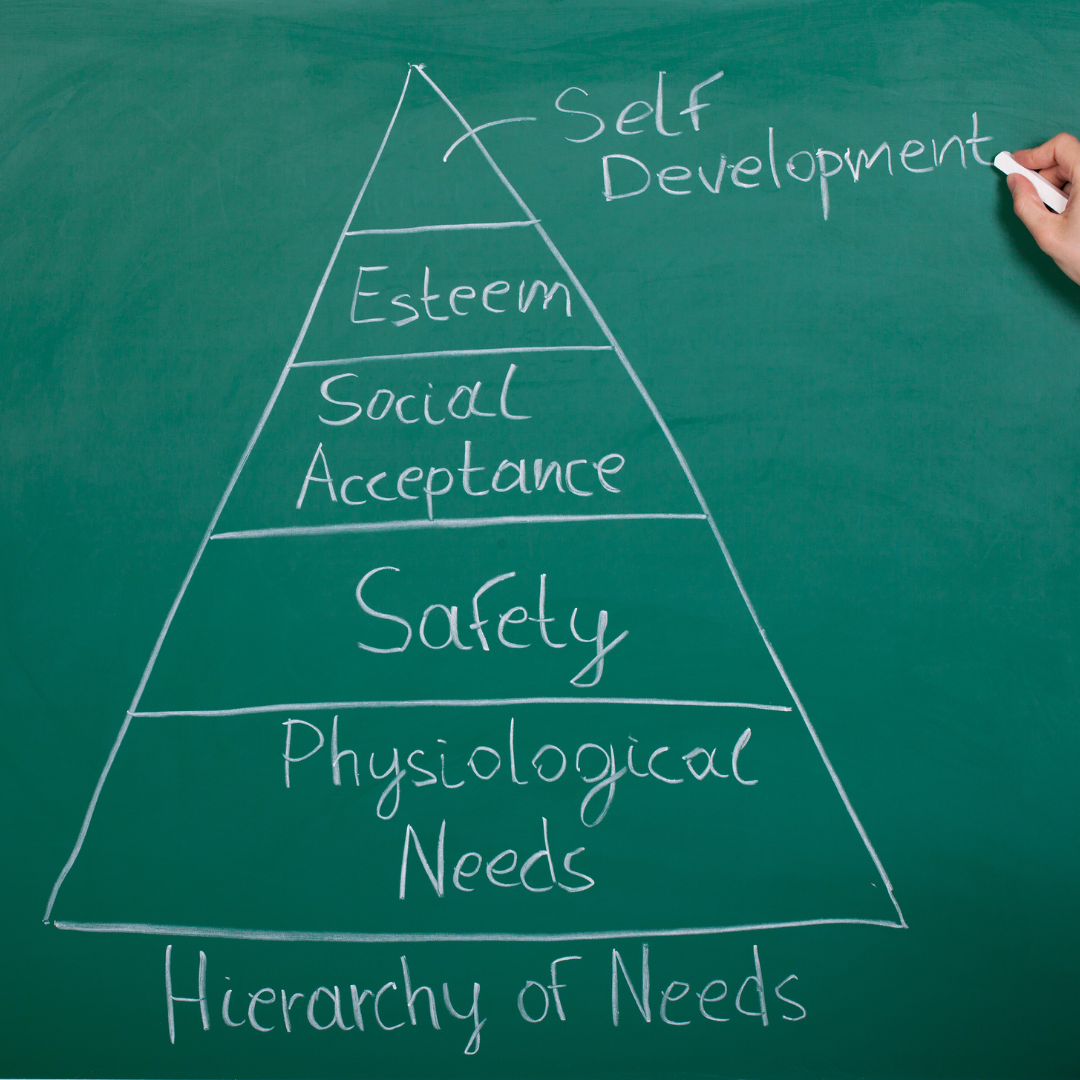 Self
Development
Esteem
Social
Acceptance
Safety
Physiological
Needs
Hierarchy of Needs